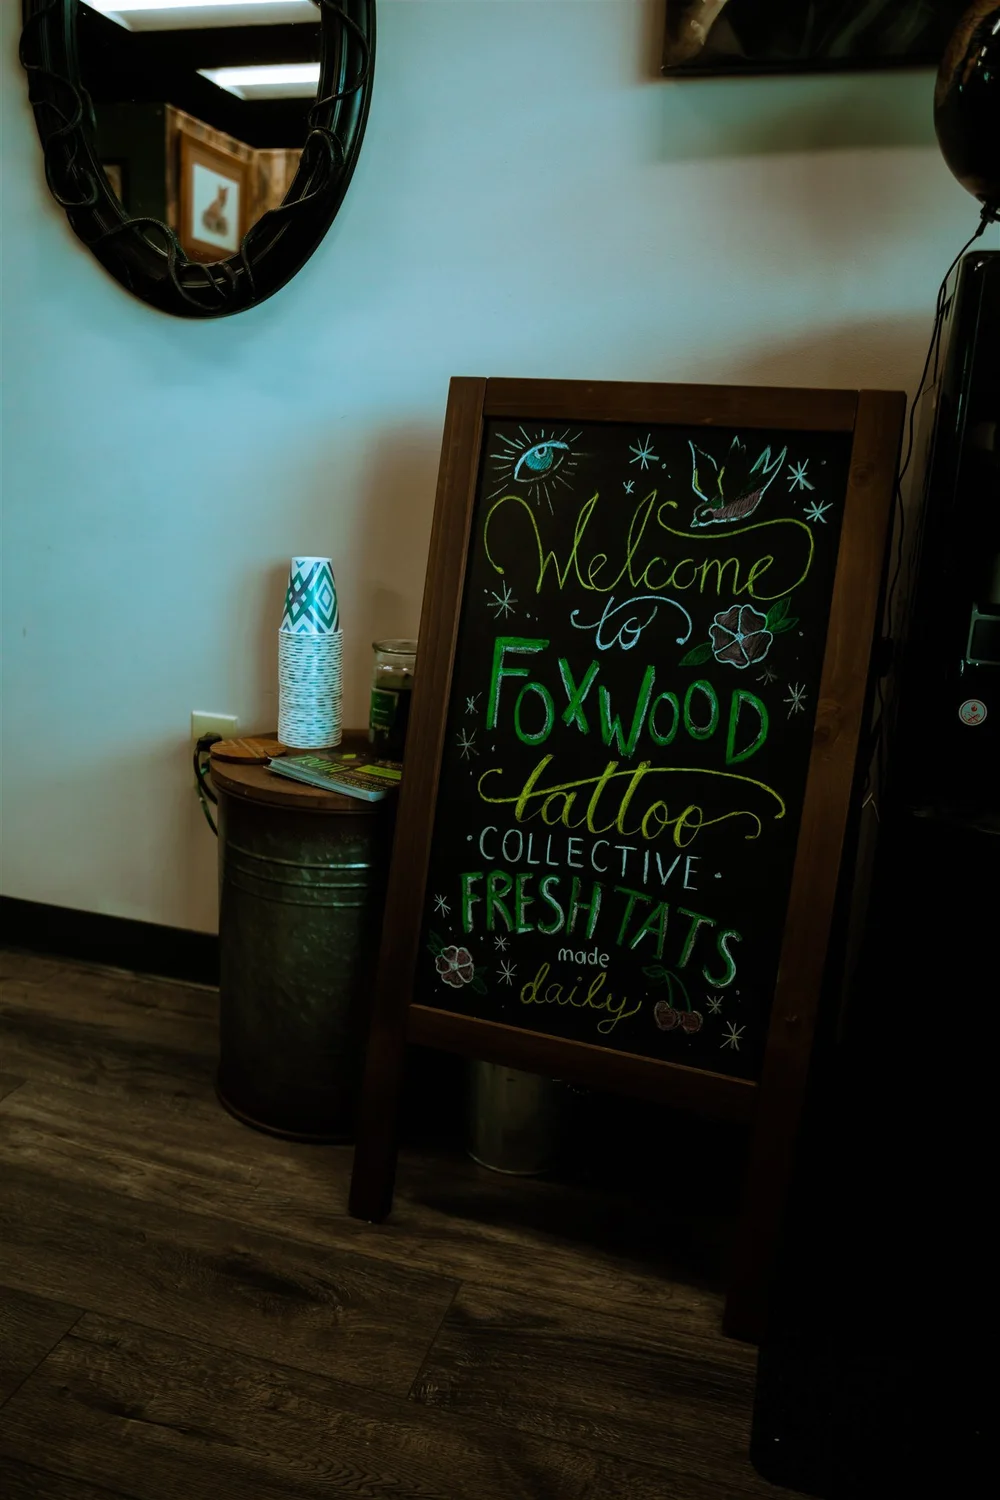 Welcome
to
FOXWOOD
tattoo
· COLLECTIVE ·
FRESH TATS
made
daily